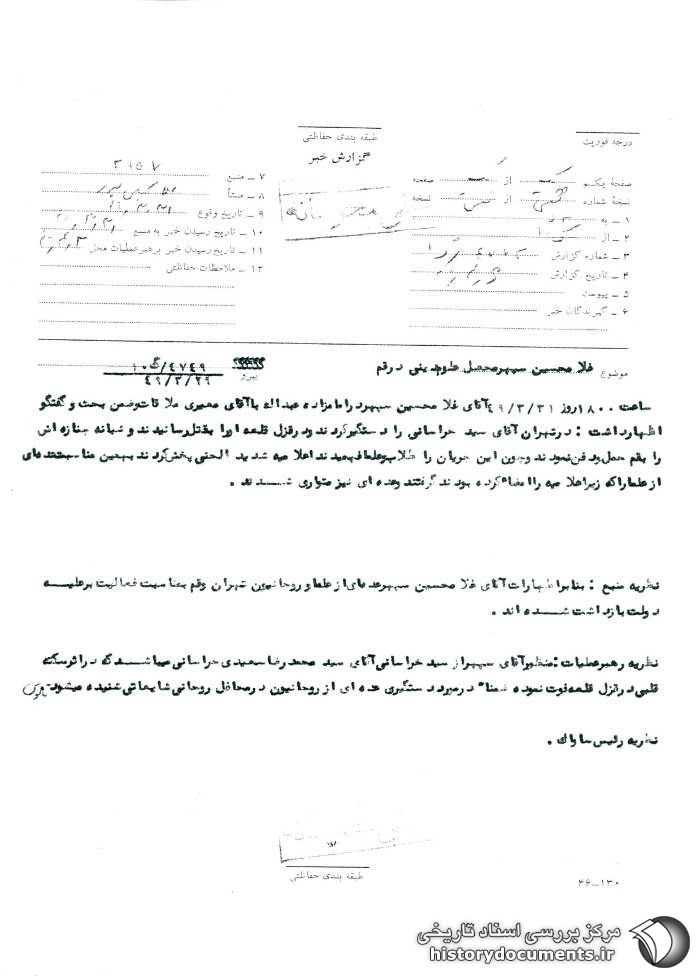 طبقه بندی حفاظتی
گزارش خبر
درجه فوریت
صفحهٔ یکم از صفحه
نسخهٔ شماره از نسخه
۱ ـ به
۲ ـ از
۳ ـ شماره گزارش
۴ ـ تاریخ گزارش
۵ ـ پیوست
۶ ـ گیرندگان خبر
۷ ـ منبع ۳۱۵۷
۸ ـ منشأ
۹ ـ تاریخ وقوع
۱۰ ـ تاریخ رسیدن خبر به منبع
۱۱ ـ تاریخ رسیدن خبر برهبر عملیات محل
۱۲ ـ ملاحظات حفاظتی
موضوع غلامحسین سپهر محصل علوم دینی در قم
پیرو ۴۷۴۹/گ۱۰
۴۹/۳/۲۹
ساعت ۱۸۰۰ روز ۴۹/۳/۳۱ آقای غلامحسین سپهر در امامزاده عبداله با آقای معیری ملاقات و ضمن بحث و گفتگو
اظهار داشت : در تهران آقای سید خراسانی را دستگیر کردند و در قزل قلعه او را بقتل رسانیدند و شبانه جنازه اش
را بقم حمل و دفن نمودند و چون این جریان را طلاب و علما فهمیدند اعلامیه شدید الحنی پخش کردند بهمین مناسبت عده‌ای
از علما را که زیر اعلامیه را امضاء کرده بودند گرفتند و عده ای نیز متواری شدند .
نظریه منبع : بنابر اظهارات آقای غلامحسین سپهر عده‌ای از علما و روحانیون تهران و قم بمناسبت فعالیت بر علیه
دولت بازداشت شده اند .
نظریه رهبر عملیات : منظور آقای سپهر از سید خراسانی آقای سید محمد رضا سعیدی خراسانی میباشد که در اثر سکته
قلبی در قزل قلعه فوت نموده ضمناً در مورد دستگیری عده ای از روحانیون در محافل روحانی شایعاتی شنیده میشود
نظریه رئیس ساواک .
طبقه بندی حفاظتی
۳۶-۱۳۰
مرکز بررسی اسناد تاریخی
historydocuments.ir